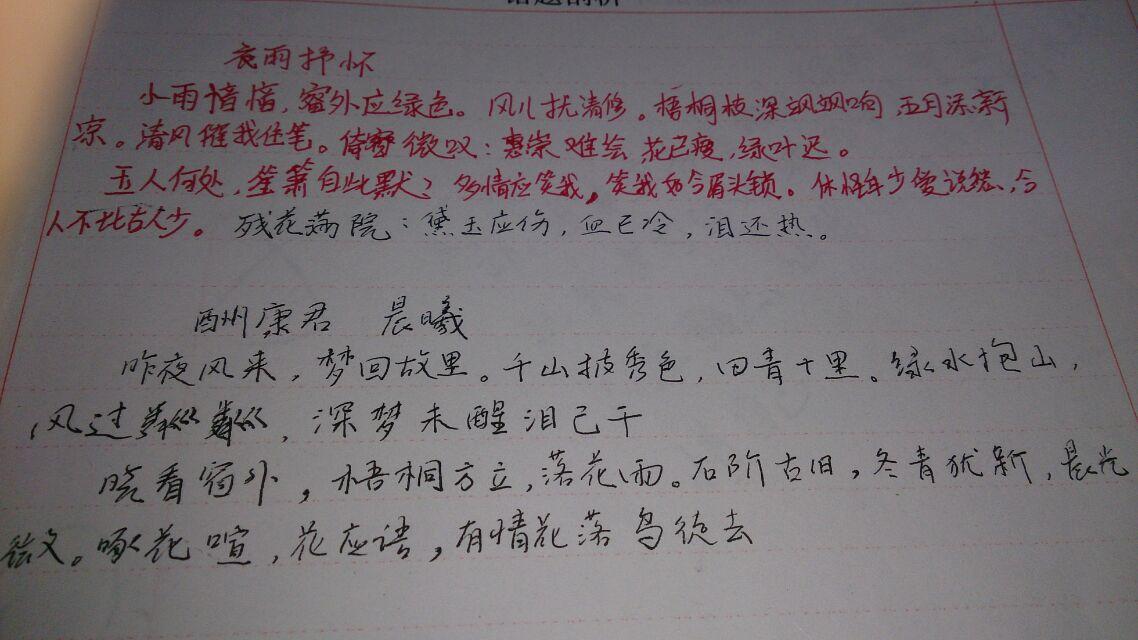 话题剖析
哀雨抒怀
小雨愔愔，窗外应绿色。风儿扰清修。梧桐枝深飒飒响，五月添新
凉。清风催我住笔。倚窗微叹：蕙崇难绘 花已瘦，绿叶迟。
玉人何处，笙箫自此默？多情应笑我，笑我如今眉头锁。休怪年少愛说愁、今
人不比古人少。残花满院：黛玉应伤，血已冷，泪还热。
酬康君 晨曦
昨夜风来，梦回故里。千山披秀色，田青十里。绿水抱山，
风过粼粼，深梦未醒泪已干
晓看窗外，梧桐方立，落花雨。石阶古旧，冬青犹新，晨光
微。啄花喧，花应语，有情花落鸟徒去